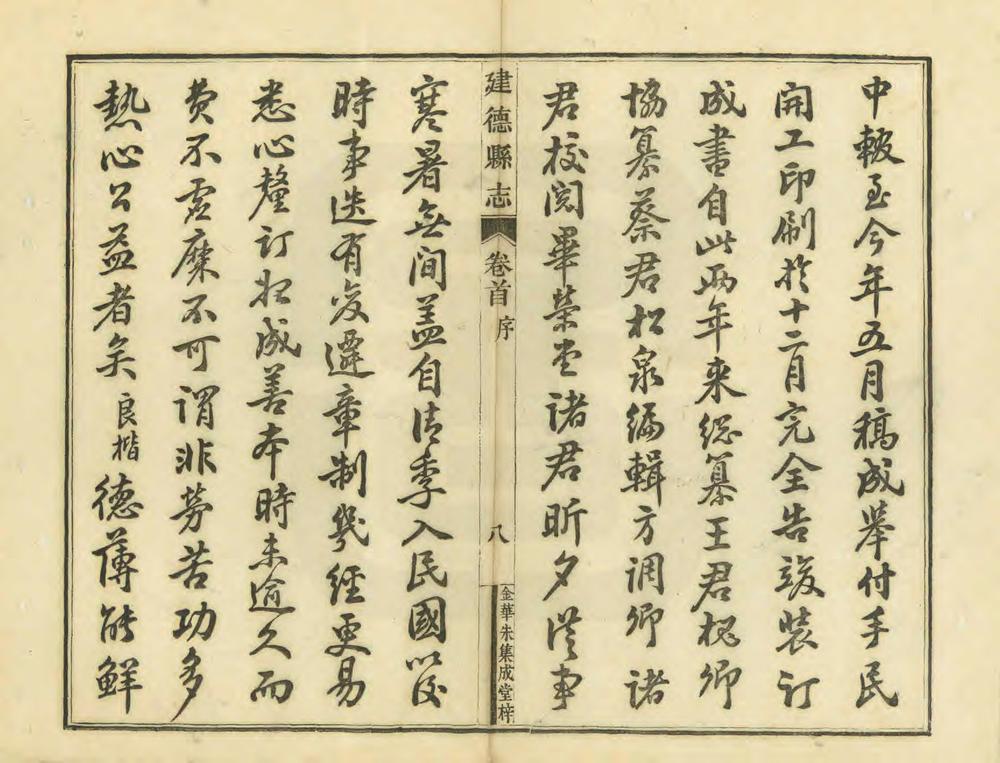 中輟至今年五月稿成舉付手民
開工印刷於十二月完全告竣裝訂
成書自此兩年來總纂王君槐卿
協纂蔡君松泉編輯方調卿諸
君校閱畢榮堂諸君昕夕從事
建德縣志
卷首 序
八
金華朱集成堂梓
寒暑無間蓋自清季入民國以後
時事迭有變遷章制幾經更易
悉心釐訂姑成善本時未逾久而
費不虛糜不可謂非勞苦功多
熱心公益者矣良楷德薄能鮮